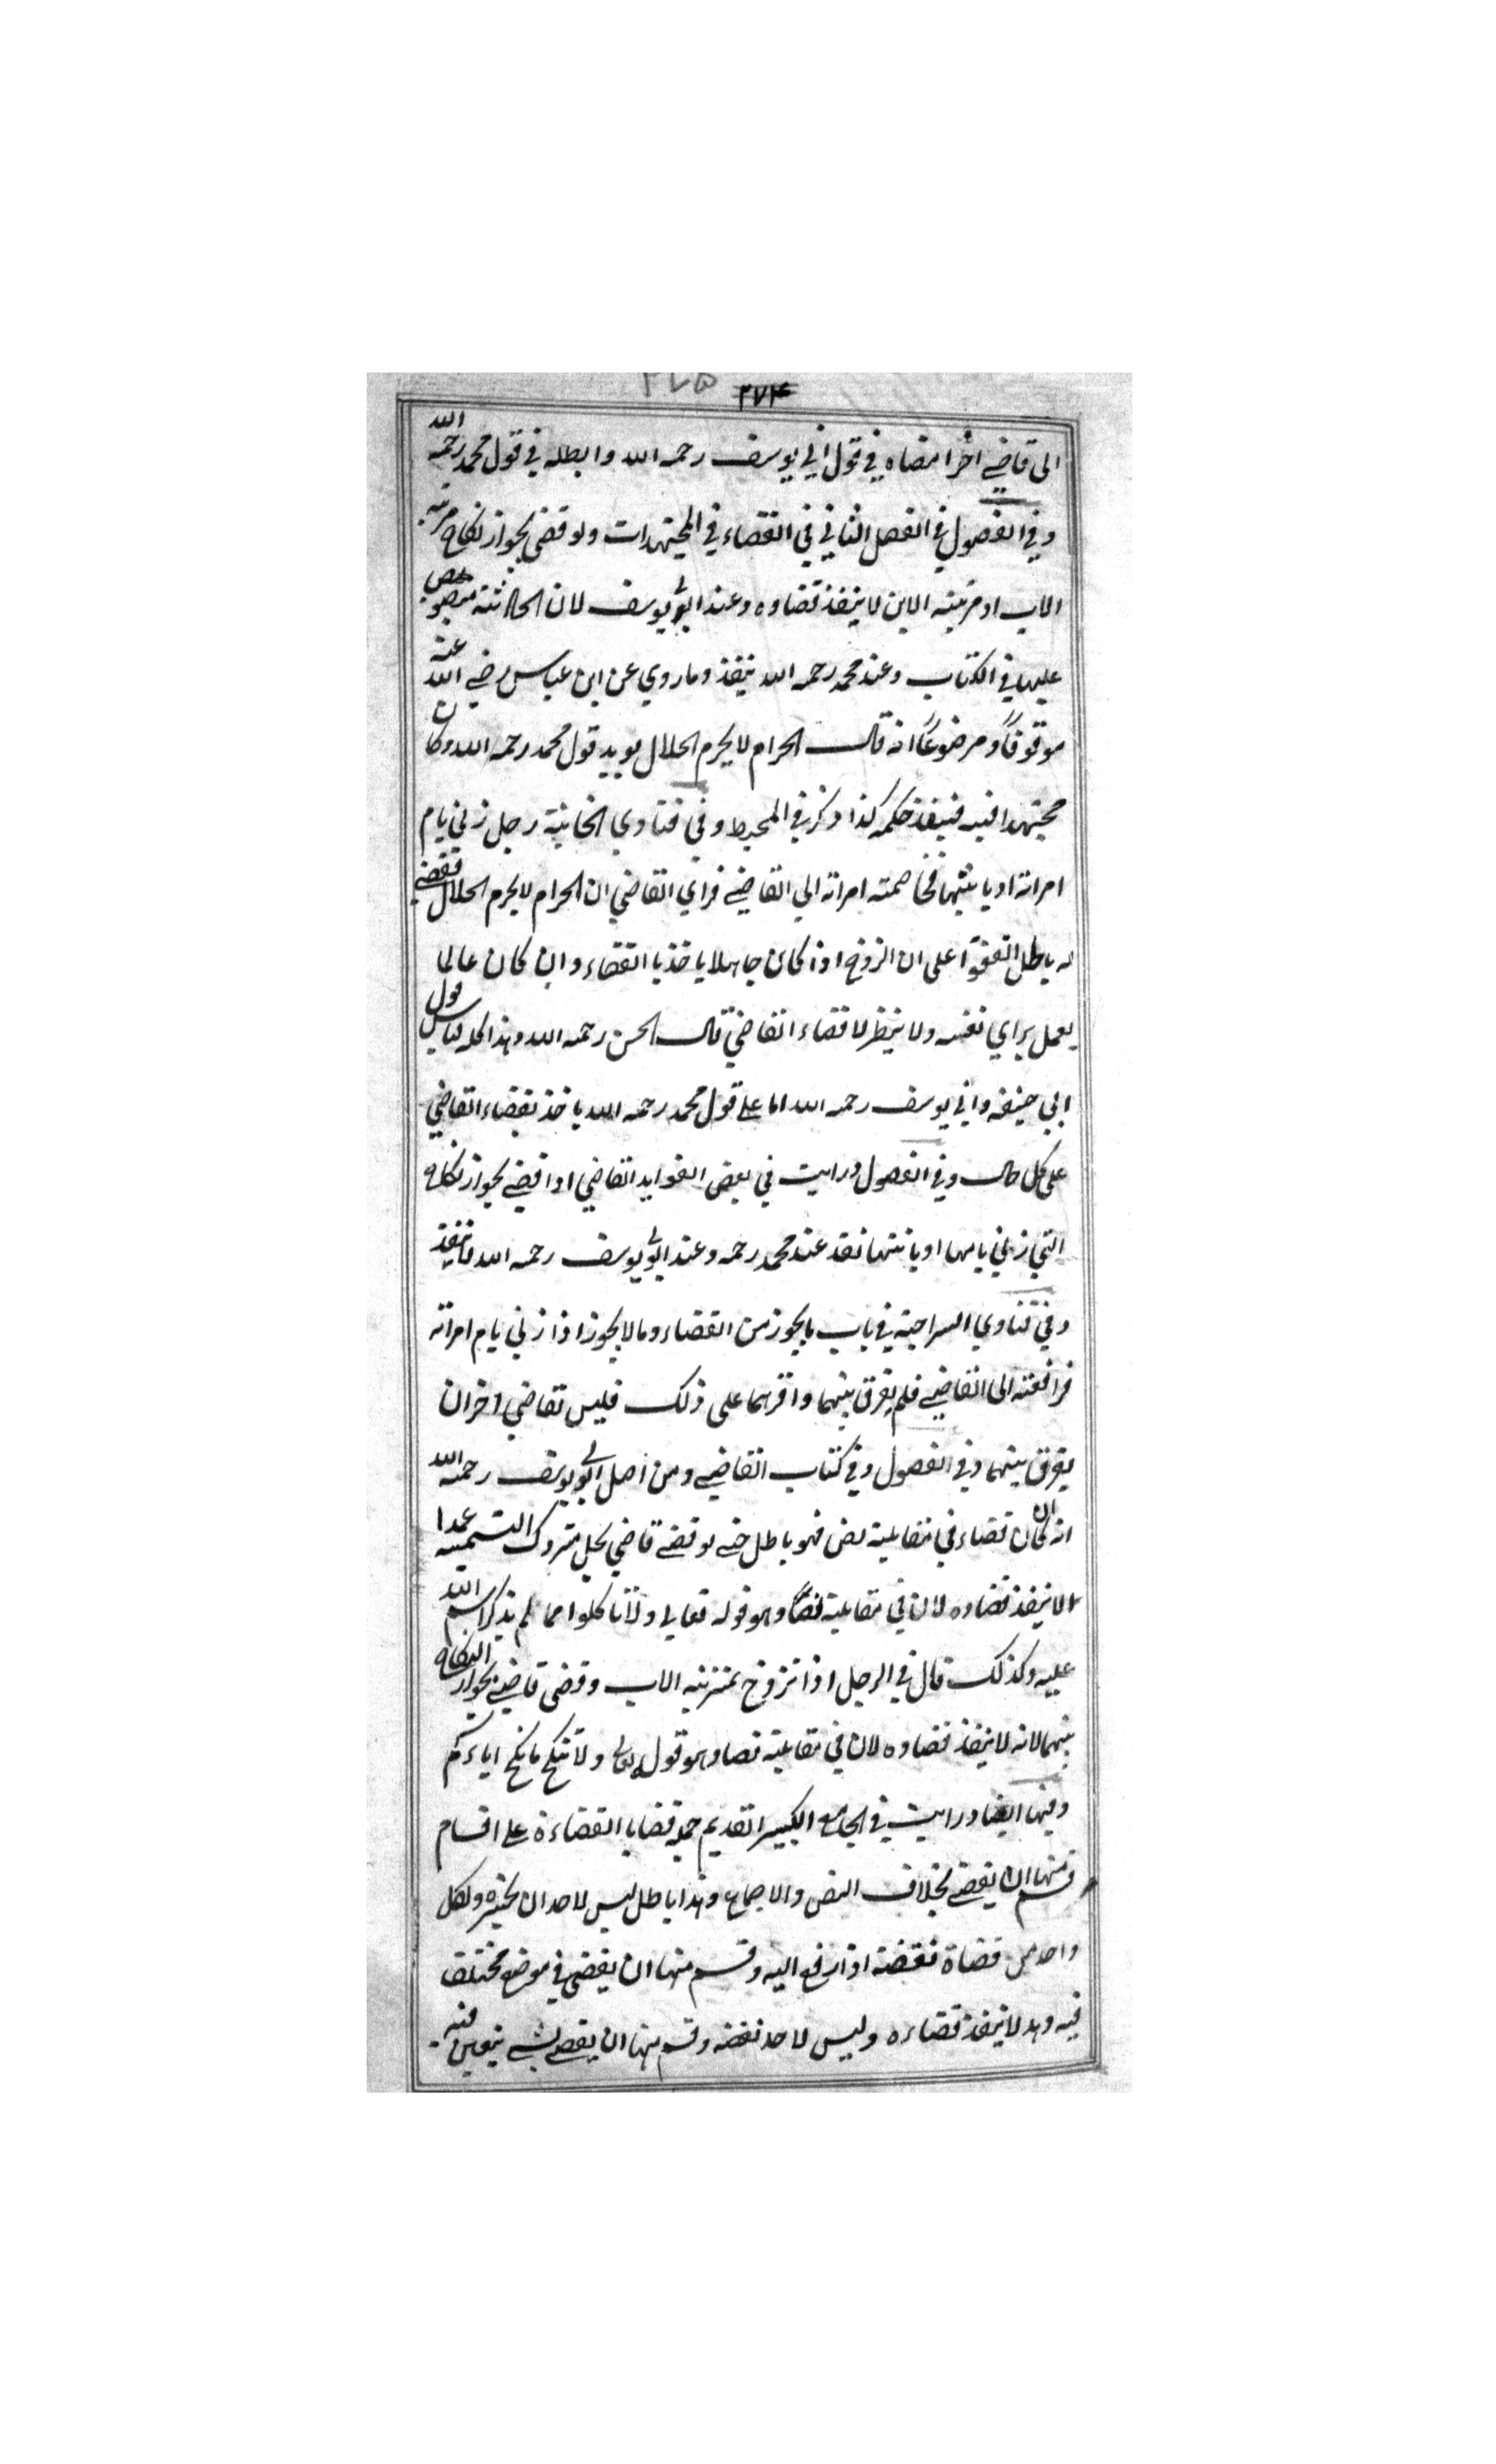 ٢٧٥ ٢٧٤
الى قاضي اخر امضاه في قول ابي يوسف رحمه الله وابطله في قول محمد رحمه الله
وفي الفصول في الفصل الثاني في القضاء في المجتهدات ولو قضى بجواز نكاح مزنية
الاب او مزنية الابن لا ينفذ قضاوه وعند ابي يوسف لان الحادثة منصوص
عليها في الكتاب وعند محمد رحمه الله ينفذ وما روي عن ابن عباس رضي الله عنه
موقوفاً ومرفوعاً انه قال الحرام لا يحرم الحلال يويد قول محمد رحمه الله وكان
مجتهدا فيه فينفذ حكمه كذا ذكر في المحيط وفي فتاوي الخانية رجل زني بام
امراته او بابنتها فخاصمته امراته الي القاضي فراي القاضي ان الحرام لا يحرم الحلال فقضي
له باطل اتفقوا على ان الزوج اذا كان جاهلا ياخذ بالقضاء وان كان عالما
يعمل براي نفسه ولا ينظر لا قضاء القاضي قال الحسن رحمه الله وهذا كله قياس قول
ابي حنيفه وابي يوسف رحمه الله اما علي قول محمد رحمه الله ياخذ بقضاء القاضي
على كل حال وفي الفصول ورايت في بعض الفوايد القاضي اذا قضي بجواز نكاح
التي زني بامها او بابنتها نفذ عند محمد رحمه وعند ابي يوسف رحمه الله لا ينفذ
وفي فتاوي السراجية في باب ما يجوز من القضاء وما لا يجوز اذا زني بام امراته
فرافعته الى القاضي فلم يفرق بينهما واقرهما على ذلك فليس لقاضي اخر ان
يفرق بينهما وفي الفصول وفي كتاب القاضي ومن اصل ابي يوسف رحمه الله
انه ان كان قضاء في مقابلة نص فهو باطل حتي لو قضي قاضي بحل متروك التسمية عمدا
لا ينفذ قضاوه لان في مقابلة نصا وهو قوله تعالي ولا تاكلوا مما لم يذكر اسم الله
عليه وكذلك قال في الرجل اذا تزوج بمزنية الاب وقضى قاضي بجواز النكاح
بينهما لانه لا ينفذ قضاوه لان في مقابلة نصا وهو قوله تعالي ولا تنكح ما نكح اباءكم
وفيها ايضا ورايت في الجامع الكبير القديم جملة قضايا القضاءة علي اقسام
قسم منها ان يقضي بخلاف النص والاجماع وهذا باطل ليس لاحد ان يجيزه ولكل
واحد من قضاة نقضه اذا رفع اليه وقسم منها ان يقضي في موضع مختلف
فيه وهد لا ينفذ قضاءه وليس لاحد نقضه وقسم منها ان يقضي بشي يتعين فيه